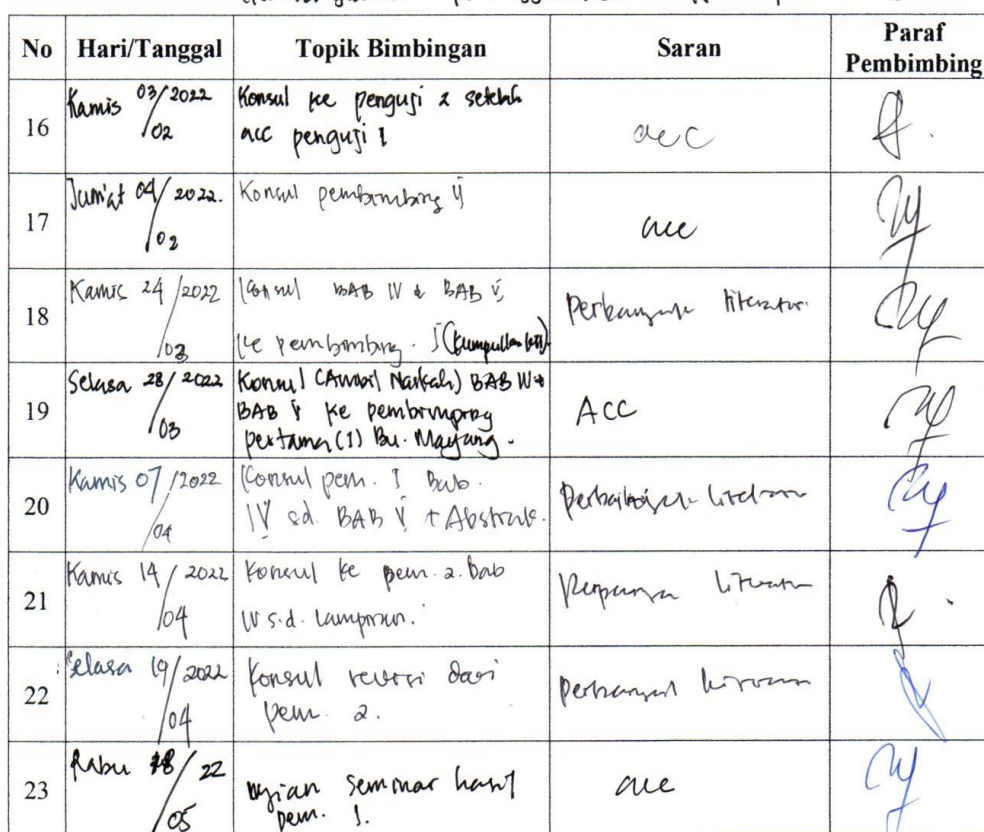 No Hari/Tanggal Topik Bimbingan Saran Paraf Pembimbing
16 Kamis 03/02/2022 Konsul ke penguji 2 setelah acc penguji 1 acc
17 Jum'at 04/02/2022. Konsul pembimbing II acc
18 Kamis 24/03/2022 Konsul BAB IV & BAB V ke pembimbing. I Perbanyak literatur.
19 Selasa 28/03/2022 Konsul (Ambil Naskah) BAB IV + BAB V ke pembimping pertama (1) Bu. Mayang. ACC
20 Kamis 07/04/2022 Konsul pem. I Bab. IV sd. BAB V + Abstrak.
21 Kamis 14/04/2022 Konsul ke pem. 2. Bab IV s.d. Lampiran.
22 Selasa 19/04/2022 Konsul revisi dari pem. 2.
23 Rabu 18/05/22 Ujian seminar hasil pem. I. acc